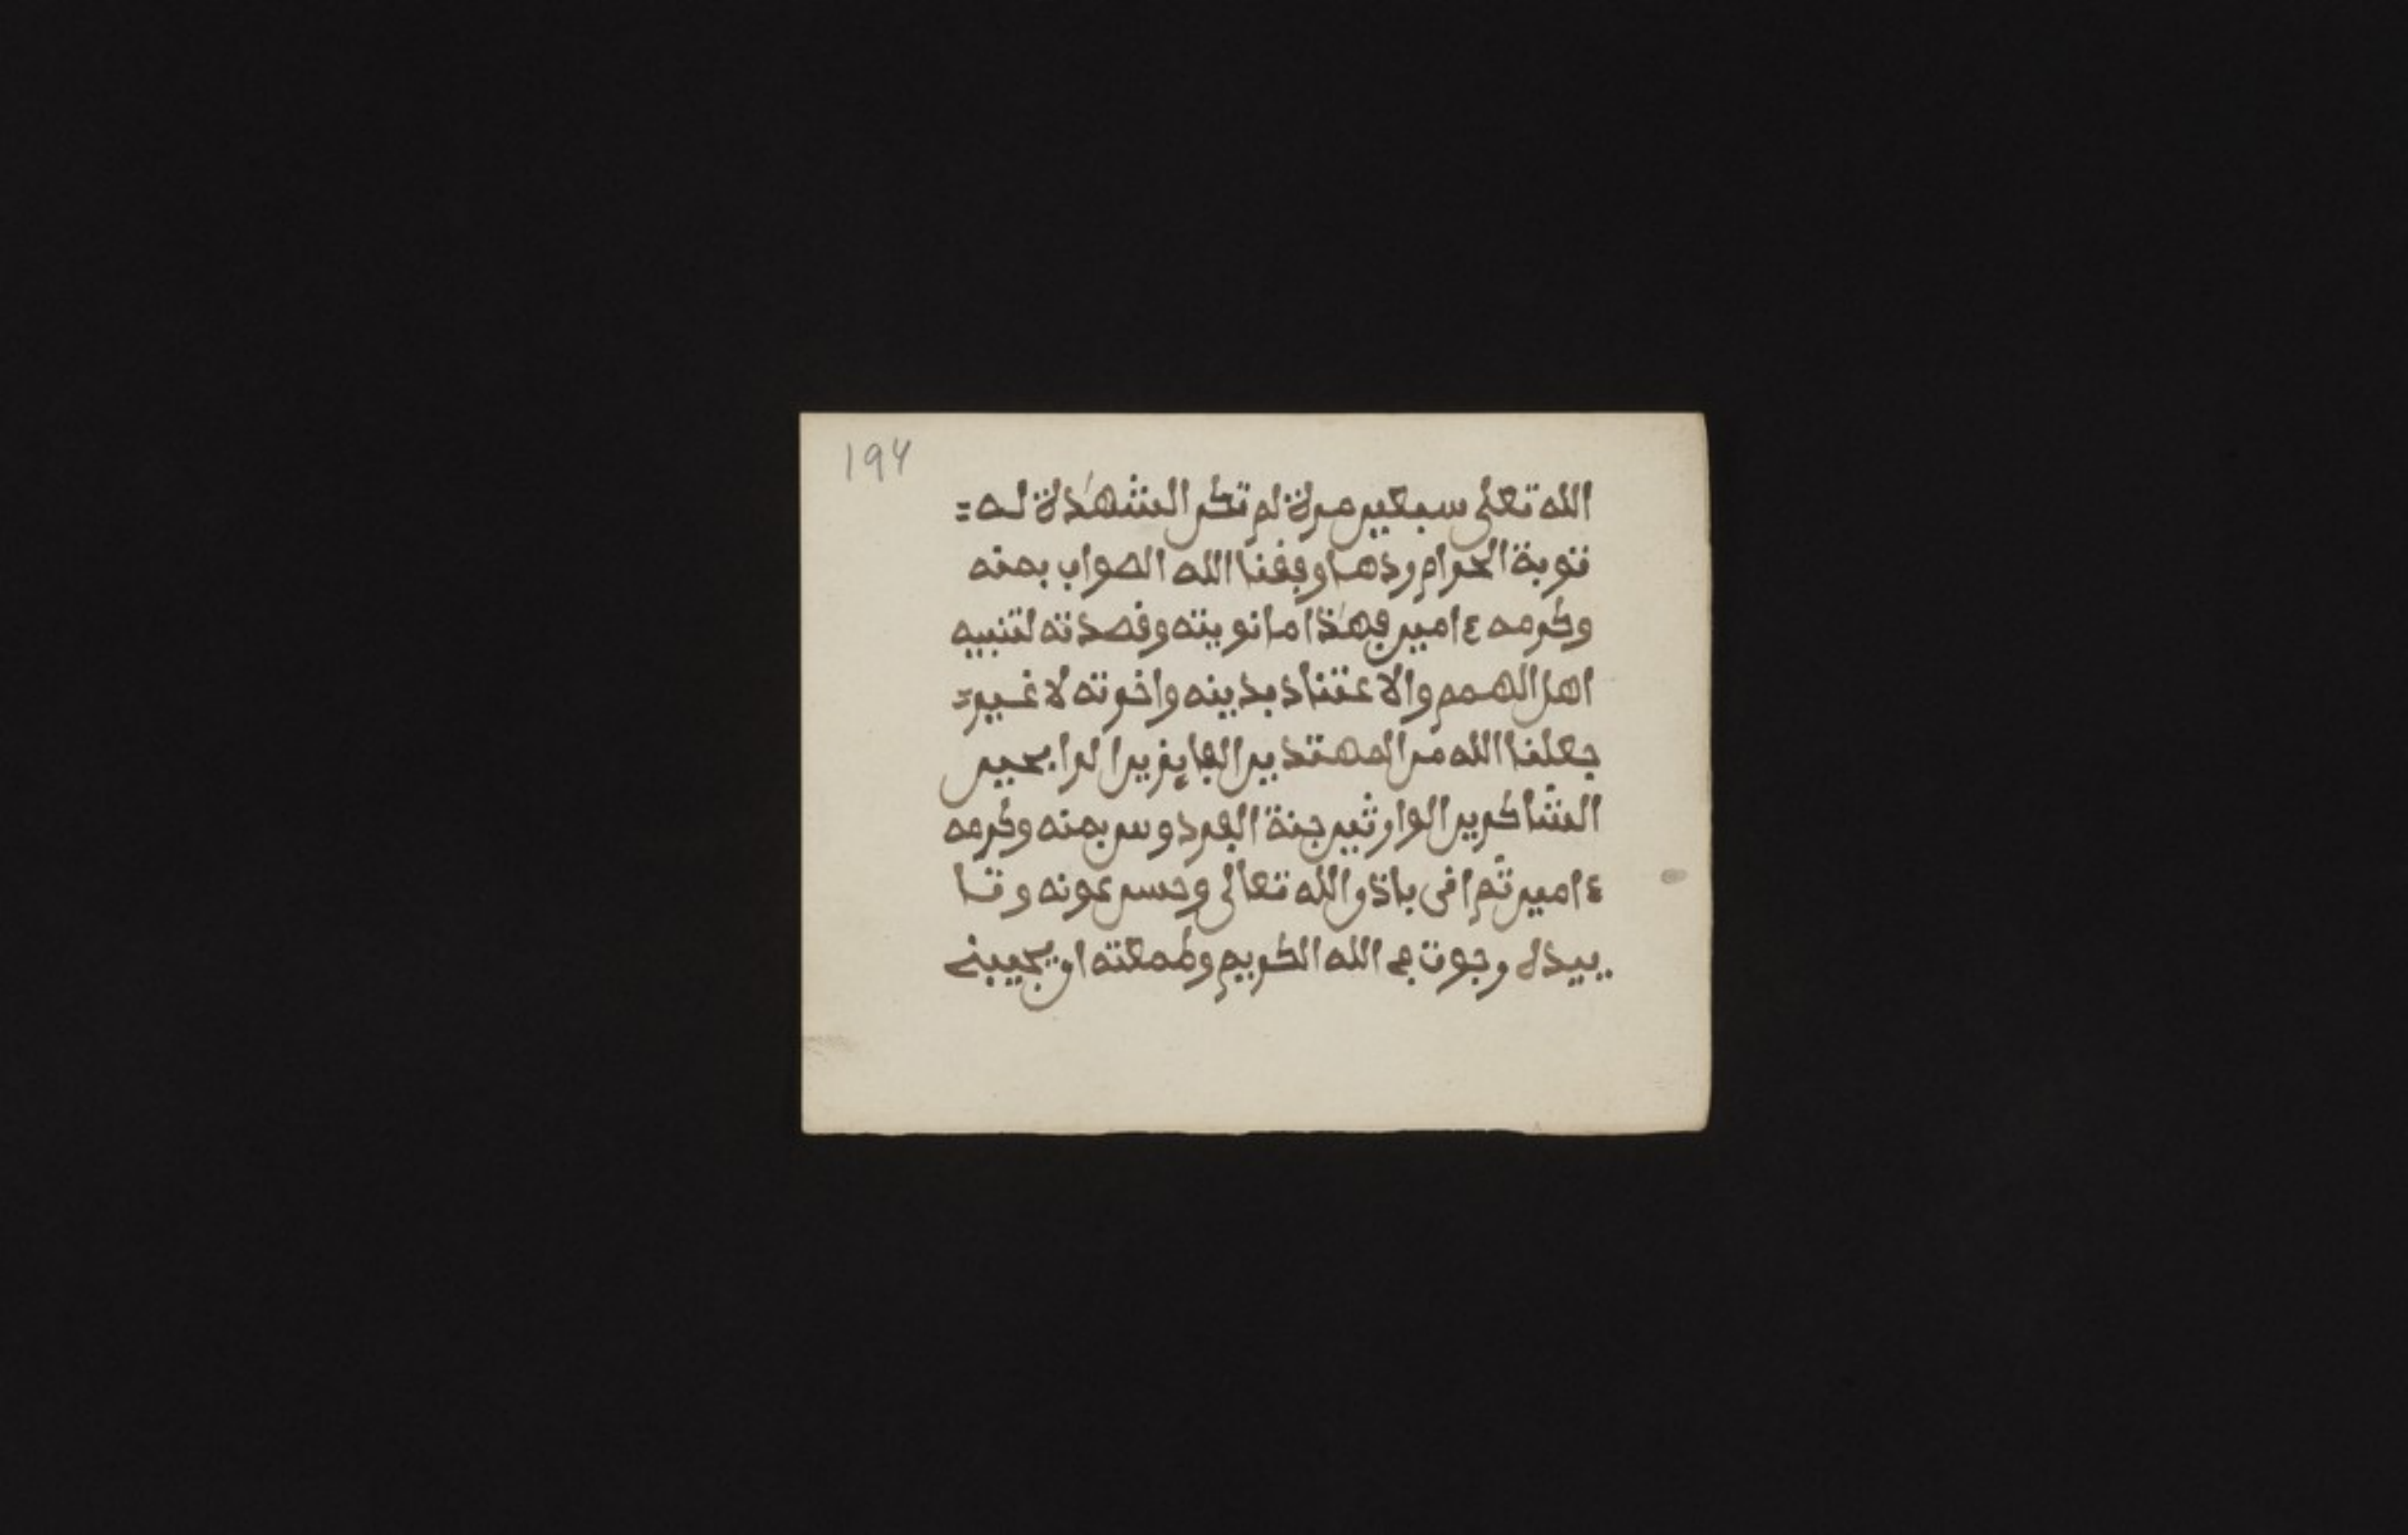 194
الله تعلى سبعين مرة لم تكن الشهدة له =
توبة الحرام ردها وفقنا الله الصواب بمنه
وكرمه ءامين فهذا ما نويته وقصدته لتنبيه
اهل الهمم والاعتناد بدينه واخوته لا غير =
جعلنا الله من المهتدين الفايزين الرابحين
الشاكرين الوارثين جنة الفردوس بمنه وكرمه
ءامين ثم انى باذن الله تعالى وحسن عونه وتا
ييده رجوت من الله الكريم وطمعته ان يجيبنى